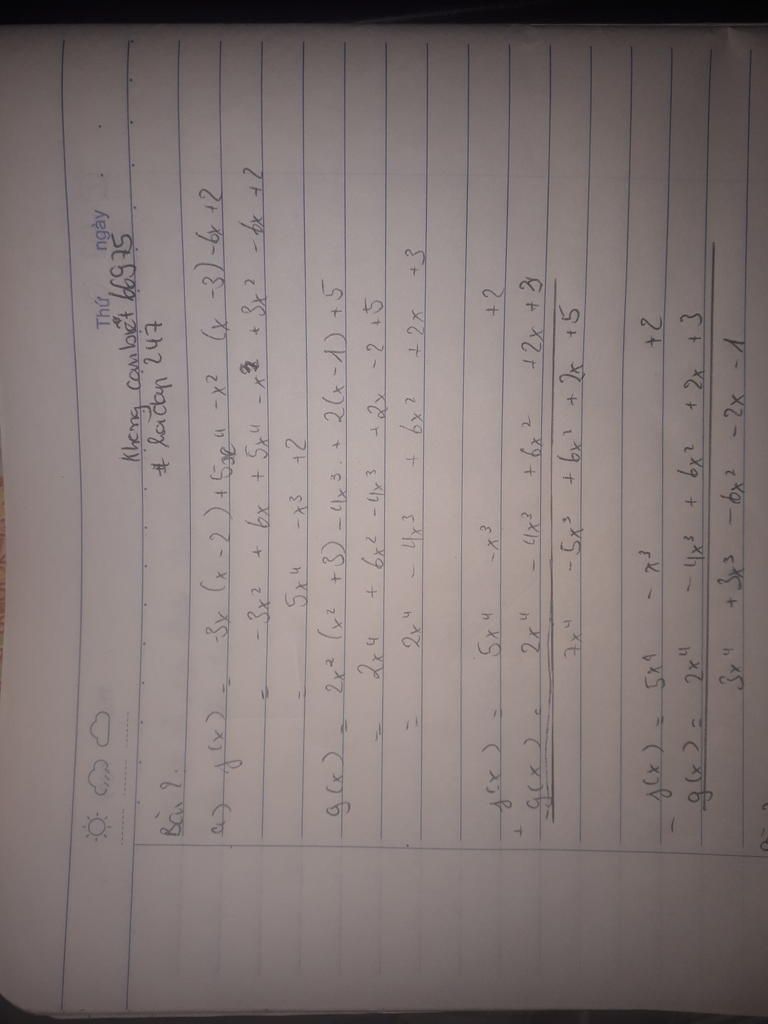 Thứ ngày
Không cần biết 66975
# hỏi đáp 247
Bài 2.
a) f(x) = -3x (x - 2) + 5x⁴ - x² (x - 3) - 6x + 2
= -3x² + 6x + 5x⁴ - x³ + 3x² - 6x + 2
= 5x⁴ - x³ + 2
g(x) = 2x² (x² + 3) - 4x³ + 2(x - 1) + 5
= 2x⁴ + 6x² - 4x³ + 2x - 2 + 5
= 2x⁴ - 4x³ + 6x² + 2x + 3
f(x) = 5x⁴ - x³ + 2
+
g(x) = 2x⁴ - 4x³ + 6x² + 2x + 3
7x⁴ - 5x³ + 6x² + 2x + 5
f(x) = 5x⁴ - x³ + 2
-
g(x) = 2x⁴ - 4x³ + 6x² + 2x + 3
3x⁴ + 3x³ - 6x² - 2x - 1